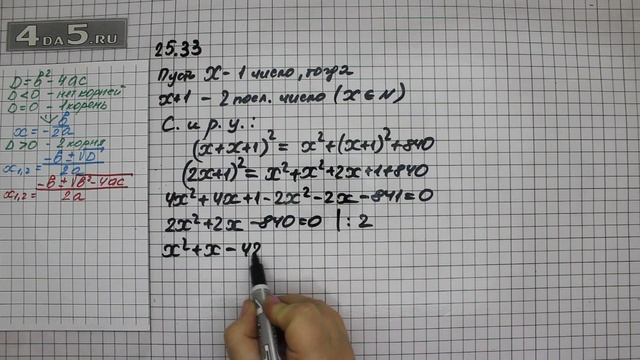 4DA5.RU
D = b² - 4ac
D < 0 - нет корней
D = 0 - 1 корень
x = -b/2a
D > 0 - 2 корня
x₁,₂ = -b ± √D / 2a
x₁,₂ = -b ± √b² - 4ac / 2a
25.33
Пусть x - 1 число, тогда
x+1 - 2 посл. число (x ∈ N)
С. и р. у.:
(x + x + 1)² = x² + (x+1)² + 840
(2x+1)² = x² + x² + 2x + 1 + 840
4x² + 4x + 1 - 2x² - 2x - 841 = 0
2x² + 2x - 840 = 0 | : 2
x² + x - 42